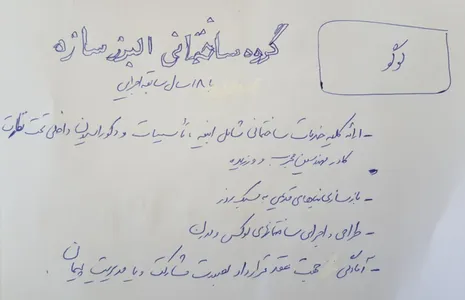 گروه ساختمانی البرز سازه
لوگو
با ۱۸ سال سابقه اجرایی
- ارائه کلیه خدمات ساختمانی شامل ابنیه، تأسیسات و دکوراسیون داخلی تحت نظارت
کادر مهندسین مجرب و ورزیده
- بازسازی بناهای قدیمی به سبک روز
- طراحی و اجرای ساختمانهای لوکس و مدرن
- آمادگی جهت عقد قرارداد بصورت مشارکت و یا مدیریت پیمان.